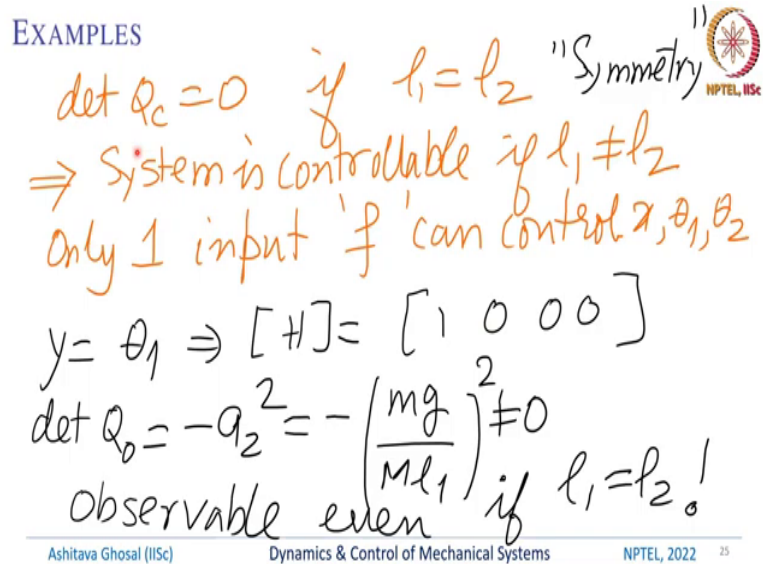 EXAMPLES
det Q_c = 0 if l_1 = l_2 "Symmetry"
NPTEL, IISc
⇒ System is controllable if l_1 ≠ l_2
Only 1 input 'f' can control x, θ_1, θ_2
y = θ_1 ⇒ [H] = [1 0 0 0]
det Q_o = -a_2^2 = -(mg/Ml_1)^2 ≠ 0
Observable even if l_1 = l_2!
Ashitava Ghosal (IISc) Dynamics & Control of Mechanical Systems NPTEL, 2022 25